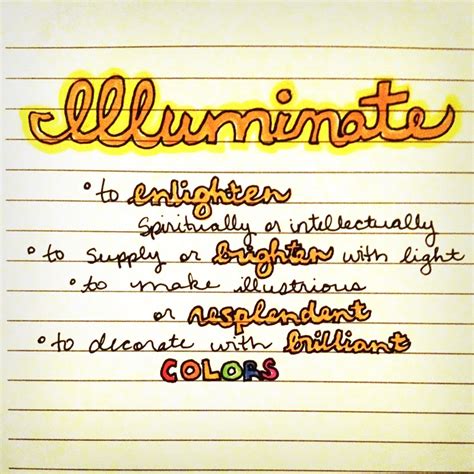 Illuminate
° to enlighten
Spiritually or intellectually
° to supply or brighten with light
° to make illustrious
or resplendent
° to decorate with brilliant
COLORS